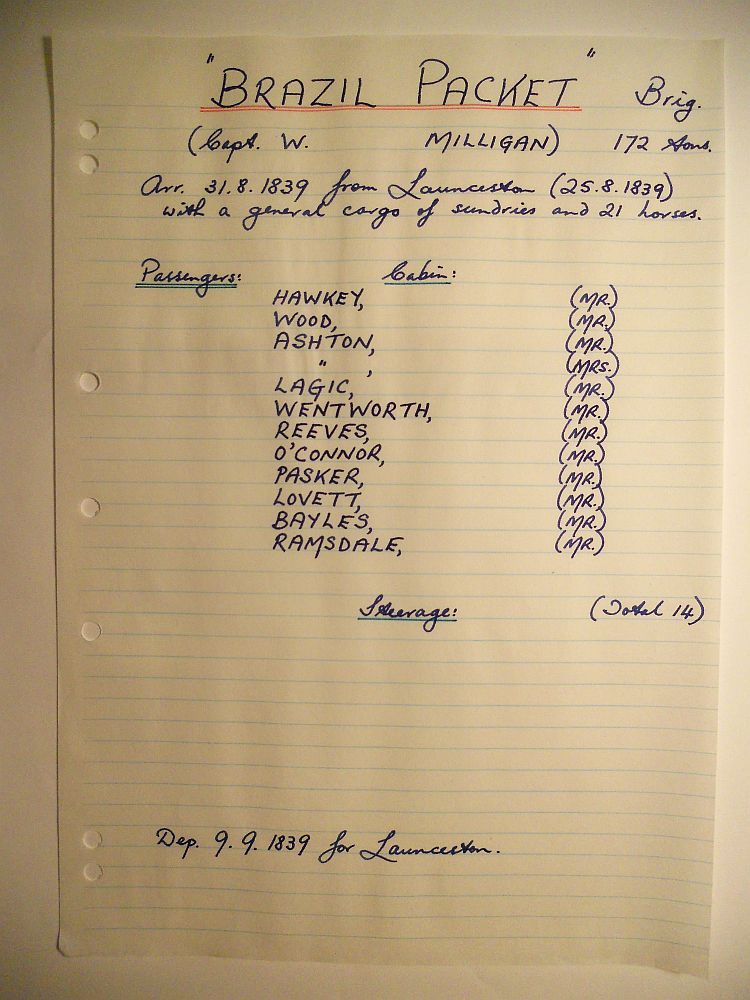 "BRAZIL PACKET" Brig.
(Capt. W. MILLIGAN) 172 tons.
Arr. 31.8.1839 from Launceston (25.8.1839)
with a general cargo of sundries and 21 horses.
Passengers: Cabin:
HAWKEY, (MR.)
WOOD, (MR.)
ASHTON, (MR.)
" , (MRS.)
LAGIC, (MR.)
WENTWORTH, (MR.)
REEVES, (MR.)
O'CONNOR, (MR.)
PASKER, (MR.)
LOVETT, (MR.)
BAYLES, (MR.)
RAMSDALE, (MR.)
Steerage: (Total 14)
Dep. 9.9.1839 for Launceston.